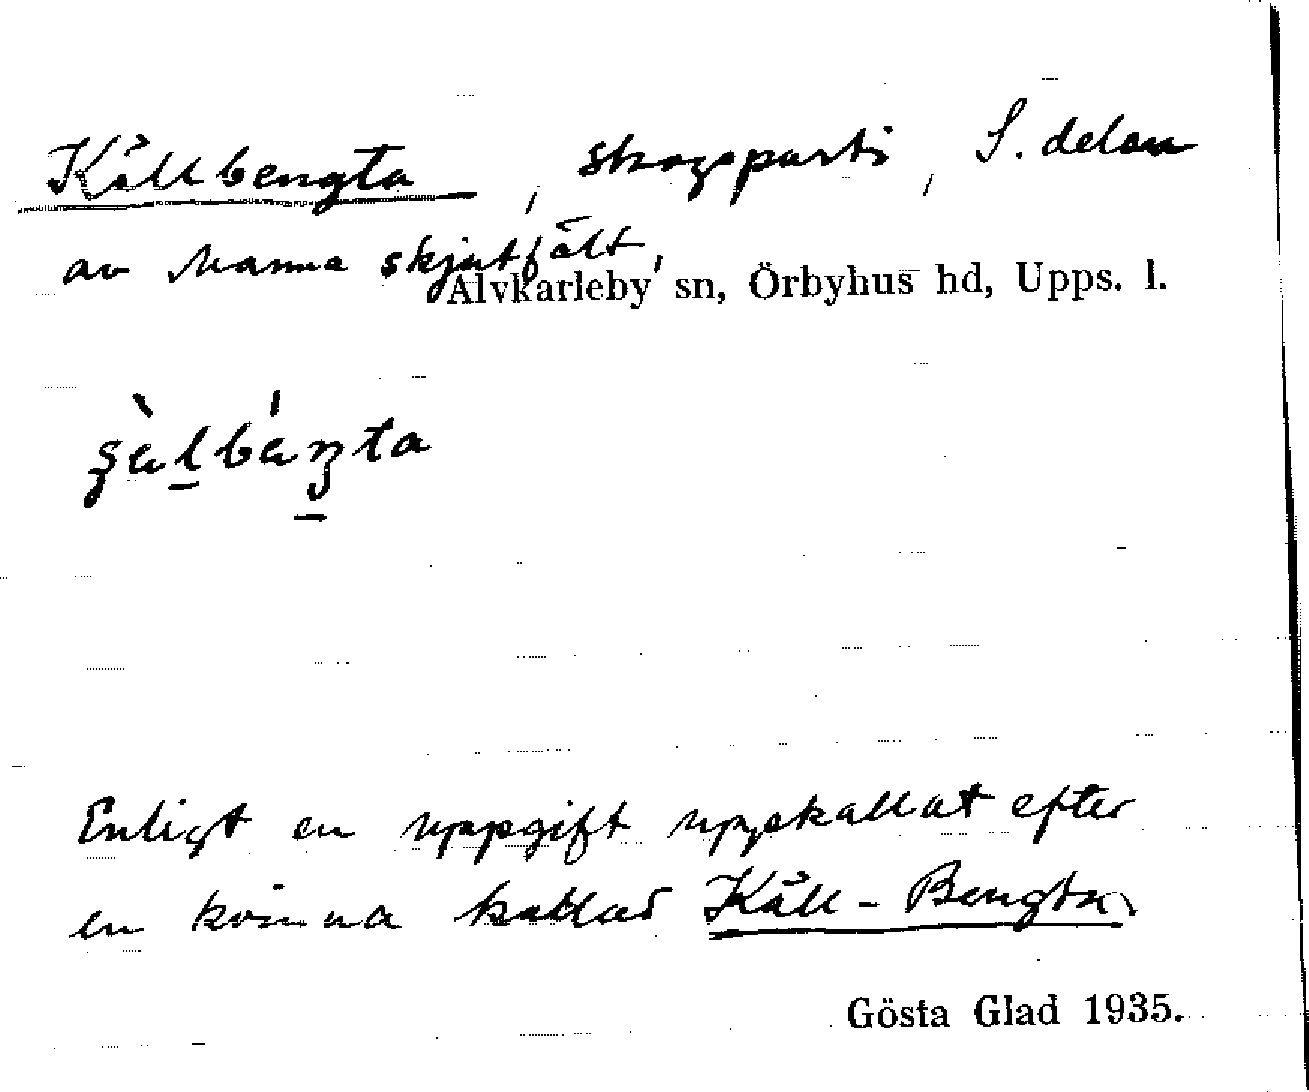 Källbengta, skogsparti, S. delen
av Marma skjutfält,
Älvkarleby sn, Örbyhus hd, Upps. l.
Enligt en uppgift uppkallat efter
en kvinna kallad Käll-Bengta
Gösta Glad 1935.